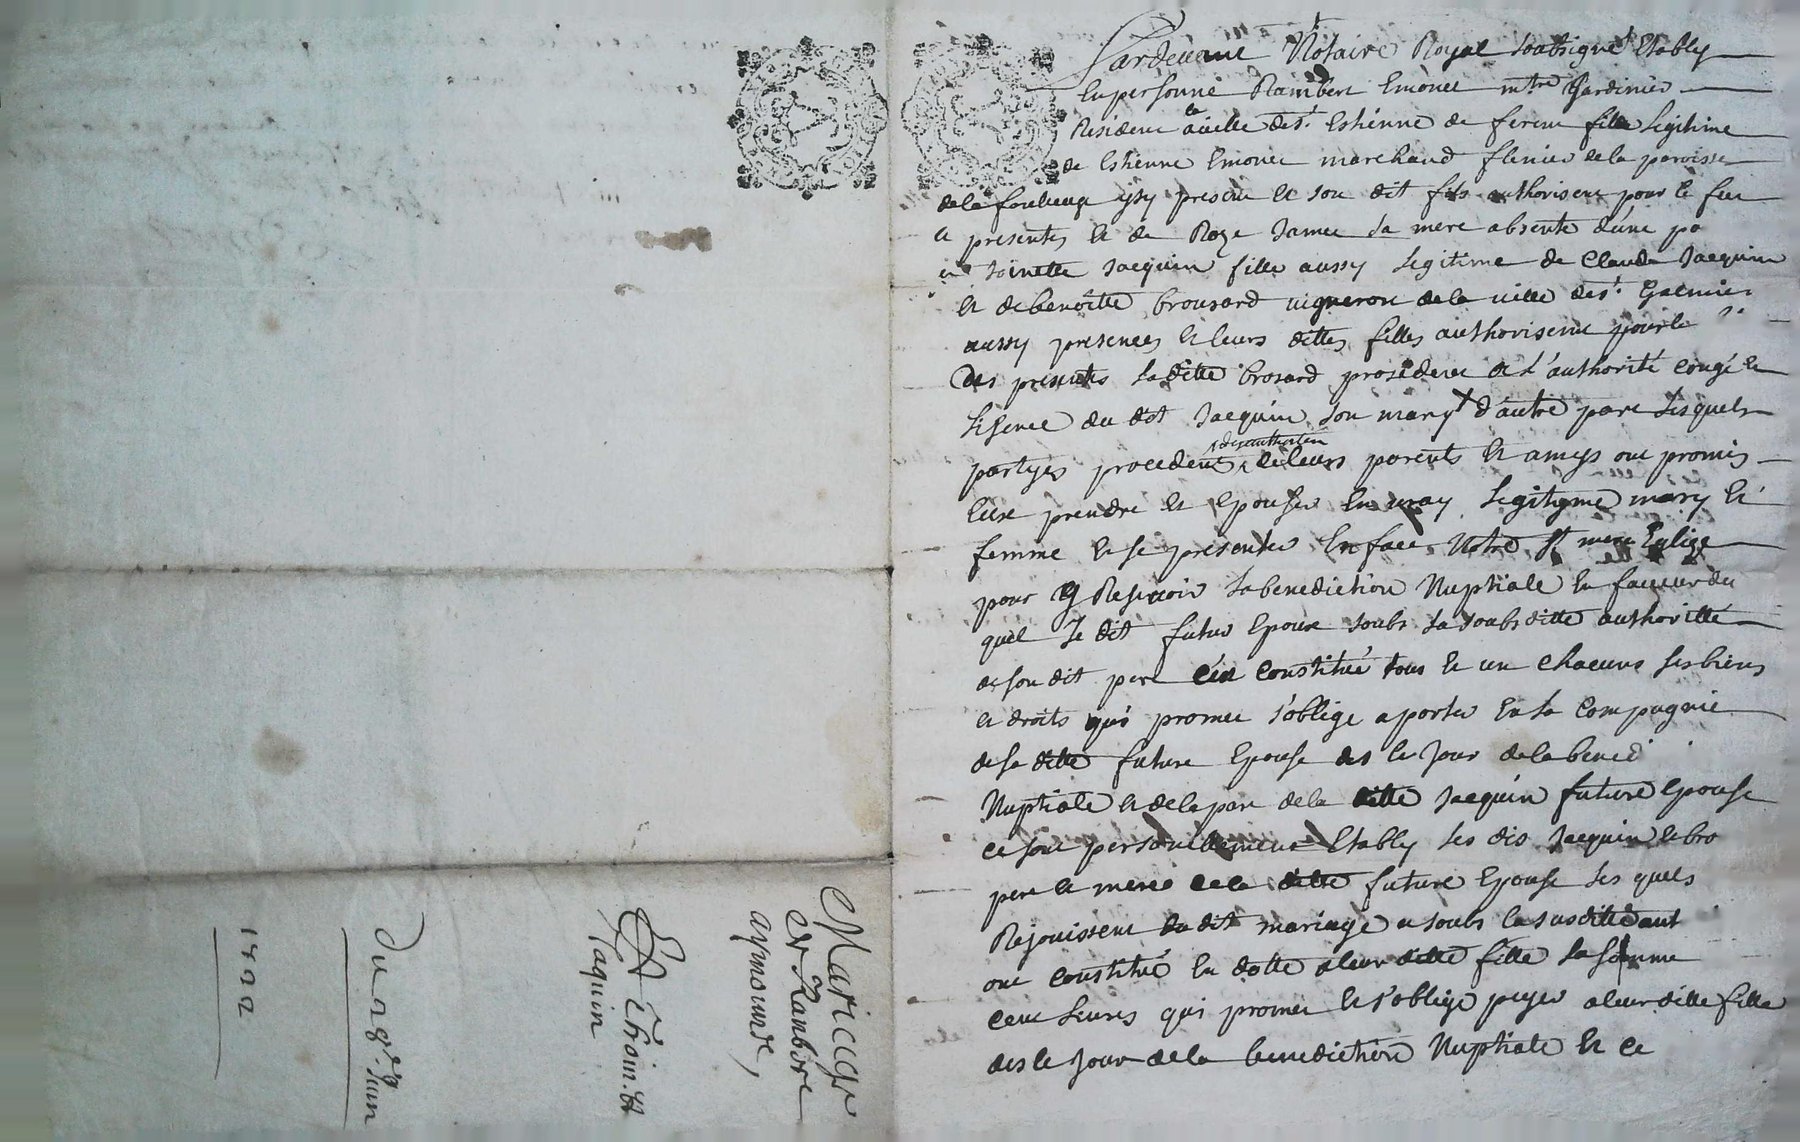 Pardevant Notaire Royal soubsigne Etably
En personne Rambert Emonet mtre Jardinier
Resident a la ville de st. Estienne de fille Legitime
de Estienne Emonet marchand de la paroisse
de la ysy present et son dit fils authorisent pour le
presentes et de Roze Jamet sa mere absente d'une pa
Toinette Jacquin fille aussy Legitime de Claude Jacquin
et de benoitte brousard vigneron de la ville de st. Galmier
aussy presences et leurs dittes filles authorisent pour le
des presentes La ditte brosard procedent de L'authorité congé et
Lisence du dit Jacquin son mary d'autre part Lesquels
partyes procedent de leurs parents et amys ont promis
prendre et Epouser En vray Legityme mary et
femme et se presenter En face Notre st mere Eglise
pour y Resevoir La benediction Nuptiale En faveur du
quel Le dit futur Epoux soubs La soubsditte authoritté
de son dit pere constitué tous et un chacuns ses biens
et droits qui promet s'oblige aporter En La Compagnie
de sa ditte future Epouse des le Jour de la bened
Nuptiale et de la part de la ditte Jacquin future Epouse
ce sont personellement Etably Les dis Jacquin et bro
pere et mere de la ditte future Epouse Les quels
Rejouissent du dit mariage et soubs la susditte aut
ont constitué En dotte a leur ditte fille La somme
cent Livres qui promet et s'oblige payer a leur ditte fille
des le Jour de la benediction Nuptiale et ce
Mariage
de Rambert
aymound,
Et Thoin. tt
Jaquin
Du
Juin
1722